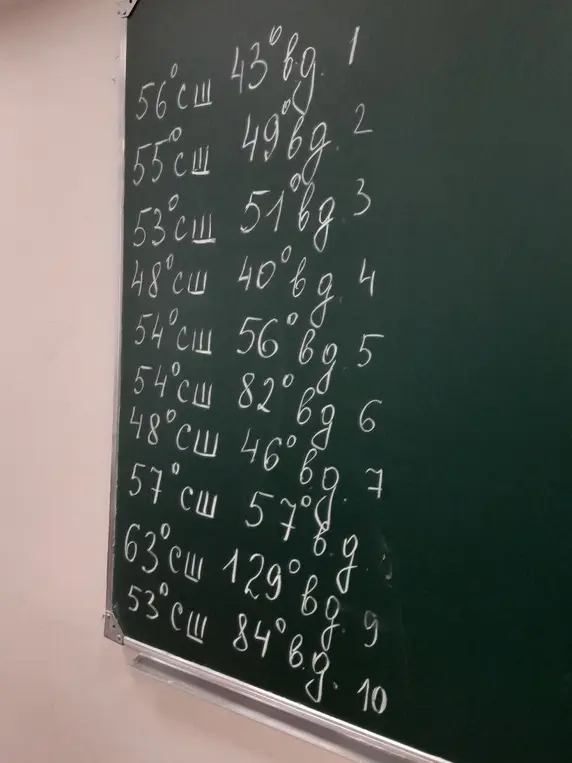 56° сш 43° в.д. 1
55° сш 49° вд. 2
53° сш 51° вд. 3
48° сш 40° вд. 4
54° сш 56° вд 5
54° сш 82° вд 6
48° сш 46° в.д. 7
57° сш 57° в.д.
63° сш 129° вд. 9
53° сш 84° в.д. 10